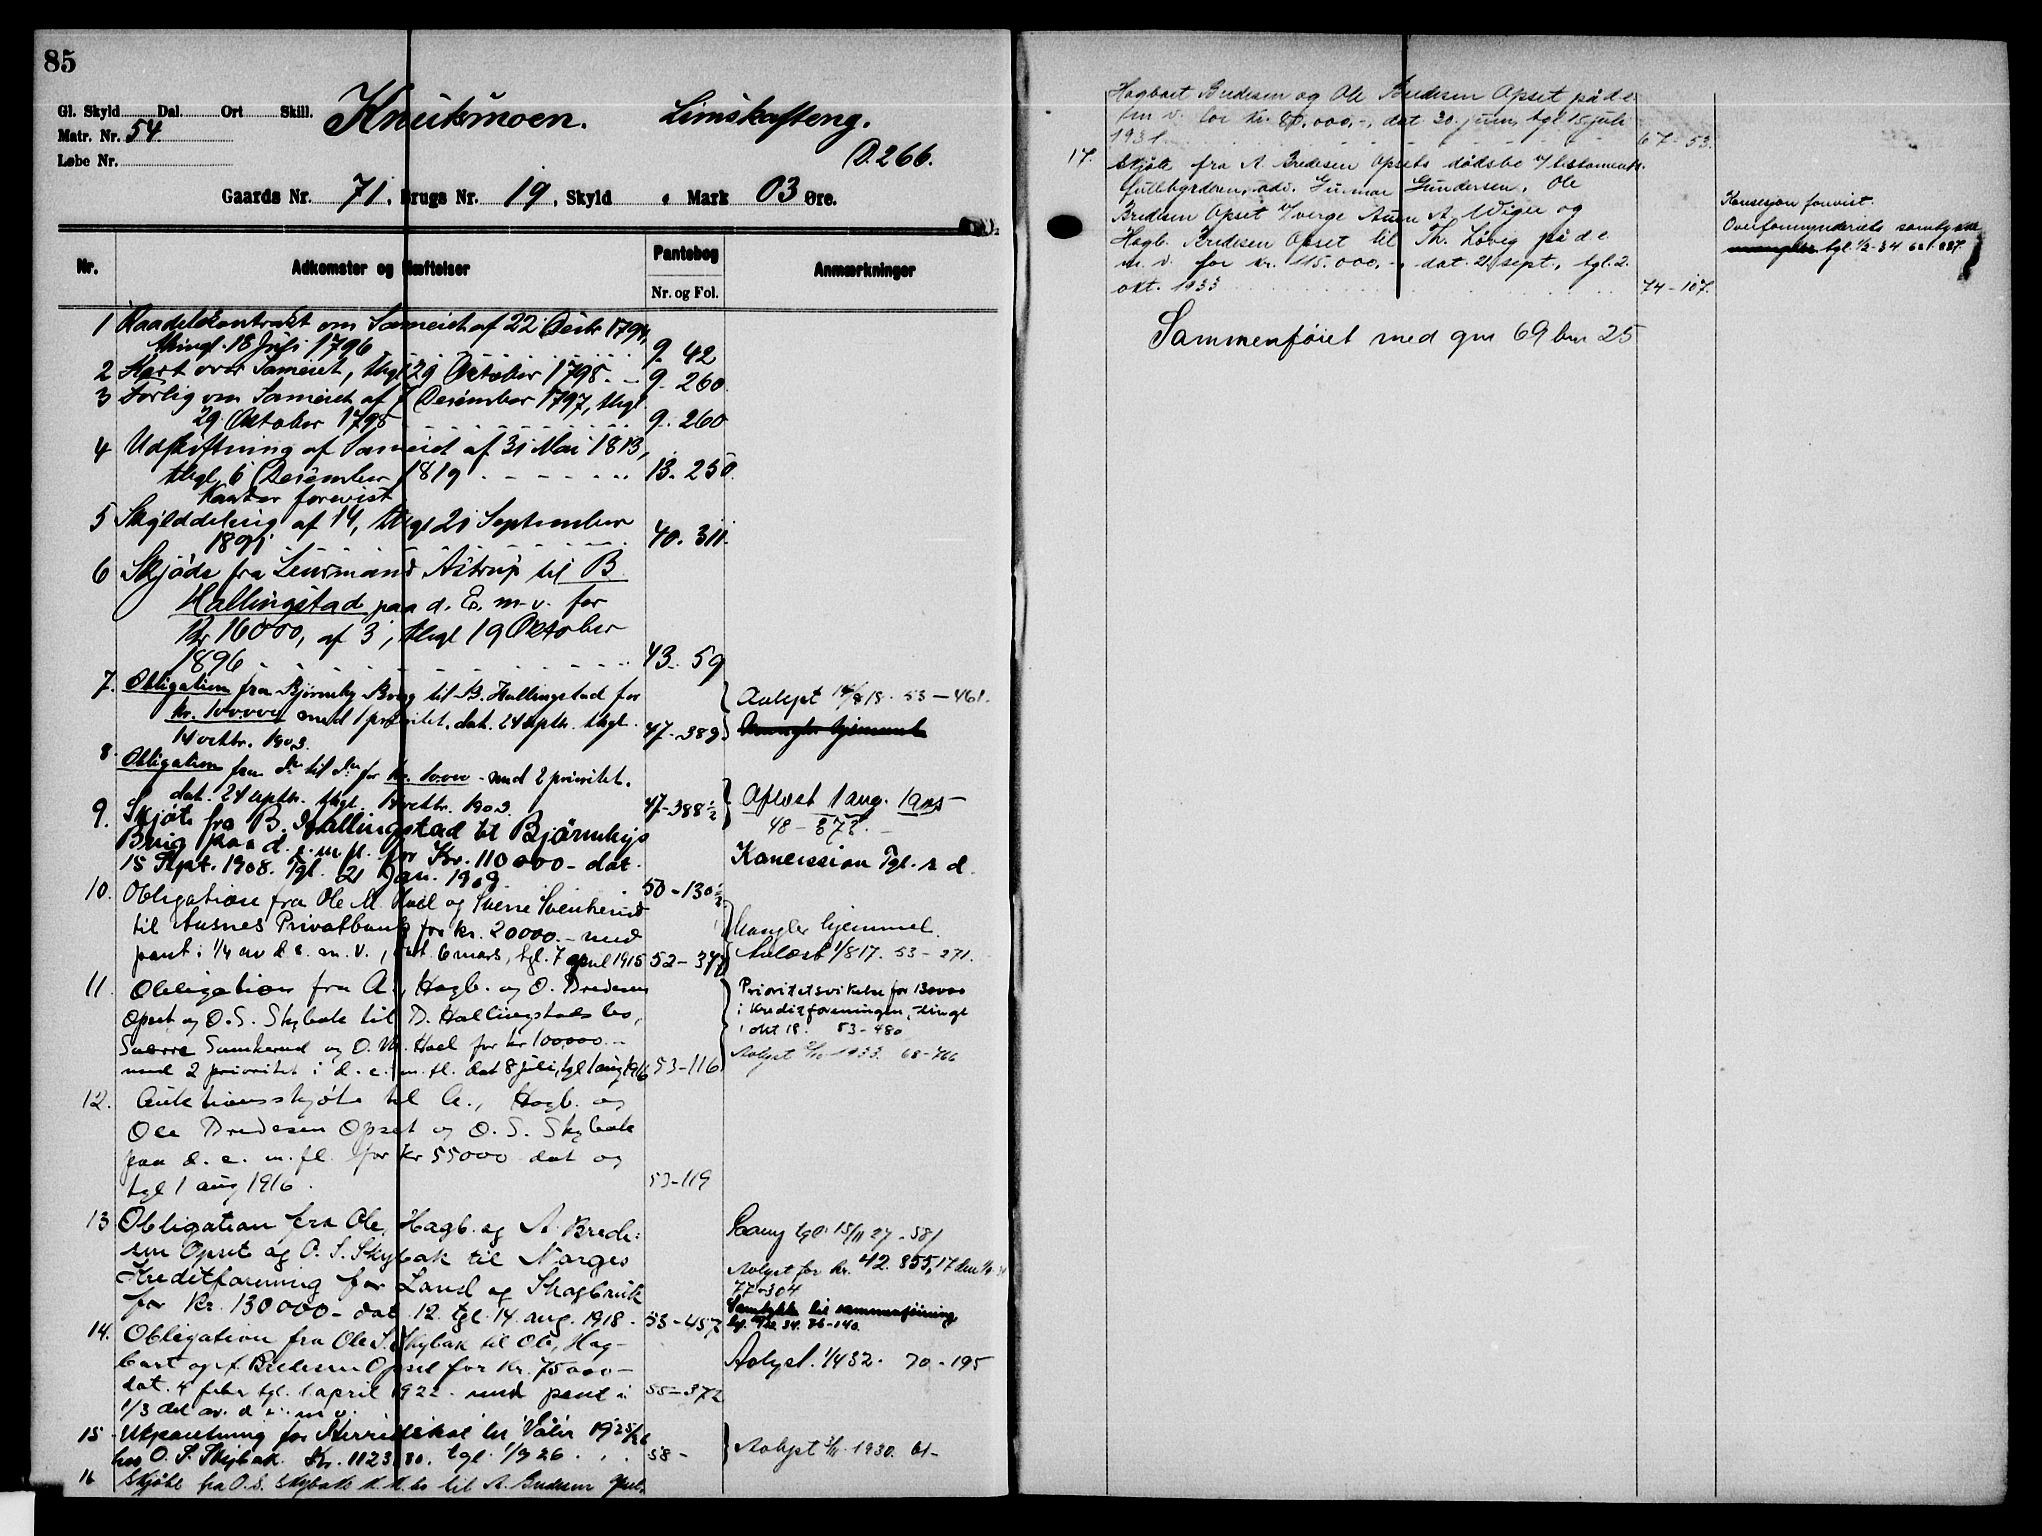 85
Gl. Skyld Dal. Ort Skill. Knuksmoen. Limskafteng.
Matr. Nr. 54.
Løbe Nr. D. 266.
Gaards Nr. 71, Brugs Nr. 19, Skyld Mark 03 Øre.
Nr. Adkomster og Hæftelser Pantebog Anmærkninger
Nr. og Fol.
1 Raadelskontrakt om Sameiet af 22 Decbr 1794,
thingl. 18 Juli 1796 9. 42
2 Kart over Sameiet, thgl 29 Oktober 1798. 9. 260.
3 Forlig om Sameiet af 7 Desember 1797, thgl
29. Oktober 1798 9. 260
4 Udskiftning af Sameiet af 31 Mai 1813,
thgl. 6 Desember 1819 13. 250.
Karter forevist
5 Skylddeling af 14, thgl 21 September
1891 40. 311.
6 Skjøde fra Lensmand Astrup til B.
Hallingstad paa d. E. m. v. for
Kr 16000, af 3, thgl 19 Oktober
1896 43. 59
7. Obligation fra Bjørnulv Brug til B. Hallingstad for
kr. 100000 med 1 prioritet. dat. 24 septbr. thgl.
14 octbr. 1903. 47-389
Avlyst 14/8 18. 53-461.
8. Obligation fra do til do for kr. 10.000 - med 2 prioritet.
dat. 24 septbr. thgl. 14 octbr. 1903. 47-388½
Aflæst 1 aug. 1905
48-372.
9. Skjøte fra B. Hallingstad til Bjørnulvs
Brug paa d. e. m. fl. for Kr. 110000 - dat.
15 Sept. 1908. Tgl. 21 Jan. 1909. 50-130½
Koncession Tgl. s. d.
10. Obligation fra Ole M. Hoel og Sverre Svenkerud
til Aasnes Privatbank for kr. 20000.- med
pant i 1/4 av d. e. m. v., dat. 6 mars, tgl. 7 april 1915 52-377
Mangler hjemmel.
Avlæst 1/8 17. 53-271.
11. Obligation fra A., Hagb. og O. Bredesen
Opset og O. S. Skybak til B. Hallingstads bo,
Sverre Svenkerud og O. M. Hoel for kr 100000.-
med 2 prioritet i d. e. m. fl. dat 8 juli, tgl 1 aug 1916 53-116
Prioritetsvikelse for 130000
i Kreditforeningen, tingl
1 okt 18. 53-480
Avlyst 1933. 68-766
12. Auktionsskjøte til A., Hagb. og
Ole Bredesen Opset og O. S. Skybak
paa d. e. m. fl. for kr 55000 dat og
tgl 1 aug 1916. 53-119
13 Obligation fra Ole, Hagb. og A. Brede-
sen Opset og O. S. Skybak til Norges
Kreditforening for Land og Skogbruk
for kr. 130000 - dat 12. tgl. 14. aug. 1918. 53-457
tgl. 15/11 27-58/
Avlyst for kr. 42.855,17 den
77-304
Samtykke til sammenføining
34. 76-140.
14. Obligation fra Ole S. Skybak til Ole, Hag-
bart og A. Bredesen Opset for kr. 75000-
dat. 4 febr tgl. 1 april 1922. med pant i 55-372
1/3 del av. d. e. m. v.
Avlyst. 1/4 32. 70-195
15 Utpantning for Herredskat til Våler 1925/26
hos O. S. Skybak. Kr. 1123,80. tgl. 1/9 26. 58-
Avlyst 1930. 61-
16 Skjøte fra O. S. Skybaks k.k.bo til A. Bredesen Opset,
Hagbart Bredesen og Ole Bredesen Opset på d. e.
m v. for kr. 80,000,-, dat. 30. juni, tgl. 15 juli
1931. 67-53.
17. Skjøte fra A Bredesen Opsets dødsbo v/ testaments-
fullbyrderen, adv. Gunnar Gundersen, Ole
Bredesen Opset v/verge Aune A. Wiger og
Hagb. Bredesen Opset til Th. Løvig på d. e.
m. v. for kr. 115.000,-, dat. 21 sept., tgl. 2.
okt. 1933 74-107.
Konsesjon forevist.
Overformynderiets samtykke
mangler tgl. 1/2-34
Sammenføiet med gnr 69 bnr 25